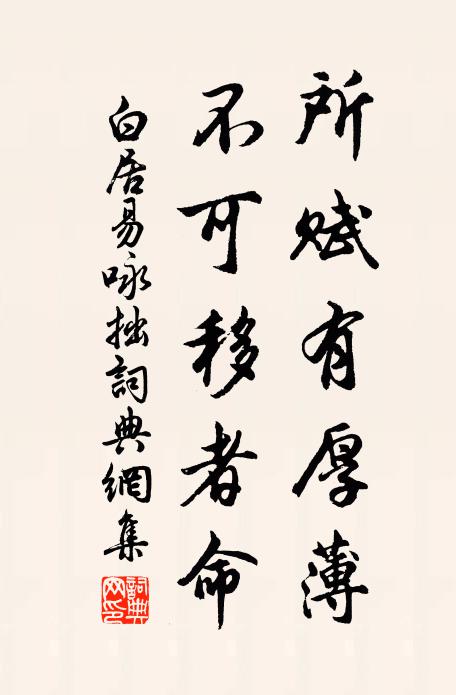 所赋有厚薄
不可移者命
白居易咏拙詞典網集
詞典
网印